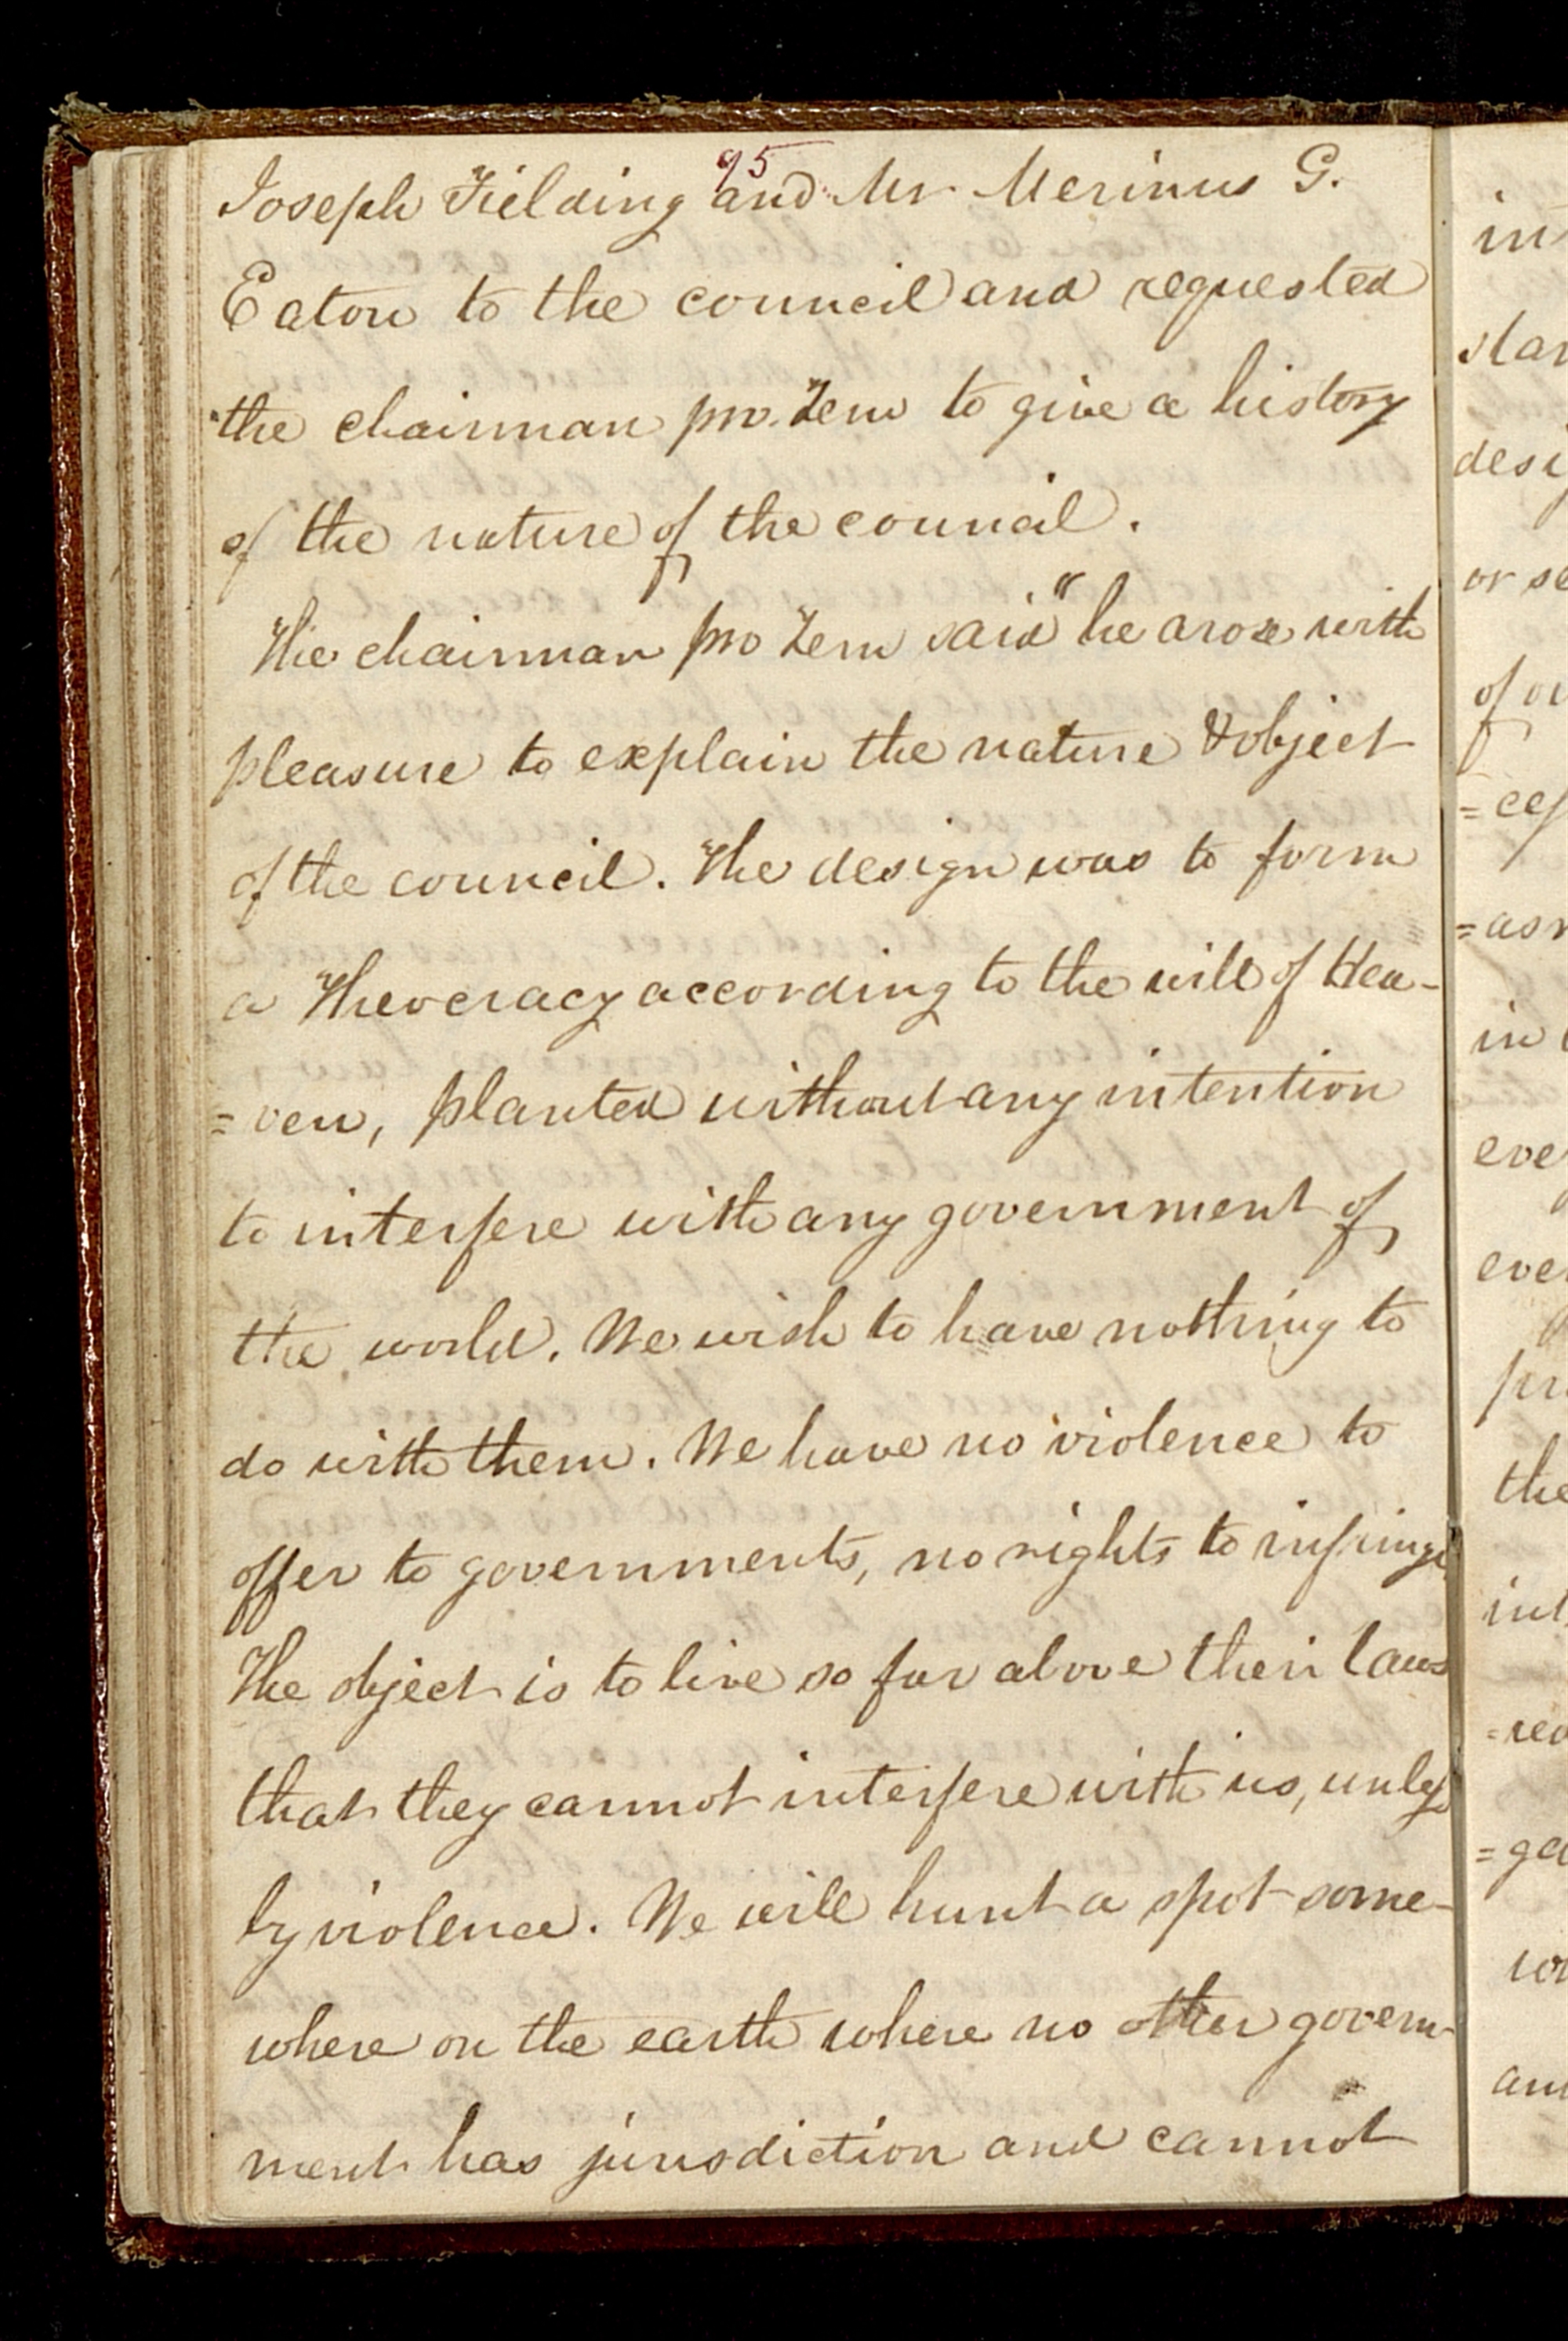 95
Joseph Fielding and Mr. Merinus G.
Eaton to the council and requested
the chairman pro. tem to give a history
of the nature of the council.
The chairman pro tem said "he arose with
pleasure to explain the nature & object
of the council. The design was to form
a Theocracy according to the will of Hea-
=ven, planted without any intention
to interfere with any government of
the world. We wish to have nothing to
do with them. We have no violence to
offer to governments, no rights to infringe
The object is to live so far above their laws
that they cannot interfere with us, unless
by violence. We will hunt a spot some-
where on the earth where no other govern-
ment has jurisdiction and cannot
in
desi
or se
of ou
=cep
in
eve
eve
pr
the
int
=ged